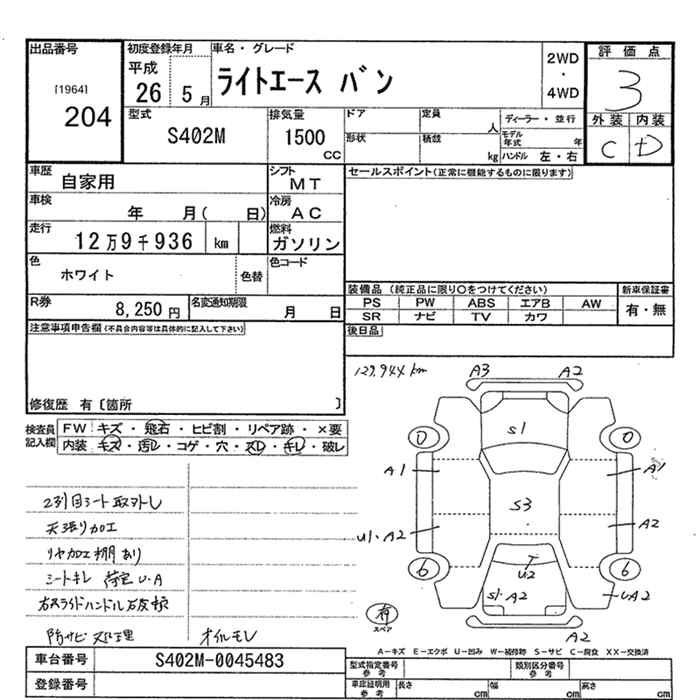 出品番号
[1964]
204
初度登録年月
平成
26 5月
車名・グレード
ライトエース バン
2WD
・
4WD
評価点
3
外装 内装
C D
型式
S402M
排気量
1500
CC
ドア
定員
人
形状
積載
kg
ディーラー・並行
モデル年式 年
ハンドル 左・右
車歴
自家用
シフト
MT
車検
年 月( 日)
冷房
AC
走行
12万9千936 km
燃料
ガソリン
色
ホワイト
色替
色コード
R券
8,250円
名変通知期限
月 日
セールスポイント(正常に機能するものに限ります)
装備品 (純正品に限り○をつけてください)
PS PW ABS エアB AW
SR ナビ TV カワ
新車保証書
有・無
後日品
注意事項申告欄(不具合内容等は具体的に記入して下さい)
修復歴 有〔箇所 〕
検査員記入欄
FW キズ・飛石・ヒビ割・リペア跡・×要
内装 キズ・汚レ・コゲ・穴・スレ・キレ・破レ
129,944 km
2列目シート取外し
天張り加工
リヤ加工棚あり
シートキレ 荷室U・A
防サビ処理 オイルモレ
A3 A2
S1
A1 A1
S3
U1・A2 A2
U2
S1・A2
UA2
A2
有
スペア
A=キズ E=エクボ U=凹み W=補修跡 S=サビ C=腐食 XX=交換済
車台番号
S402M-0045483
登録番号
型式指定番号
参考
類別区分番号
参考
車庫証明用
参考
長さ cm 幅 cm 高さ cm